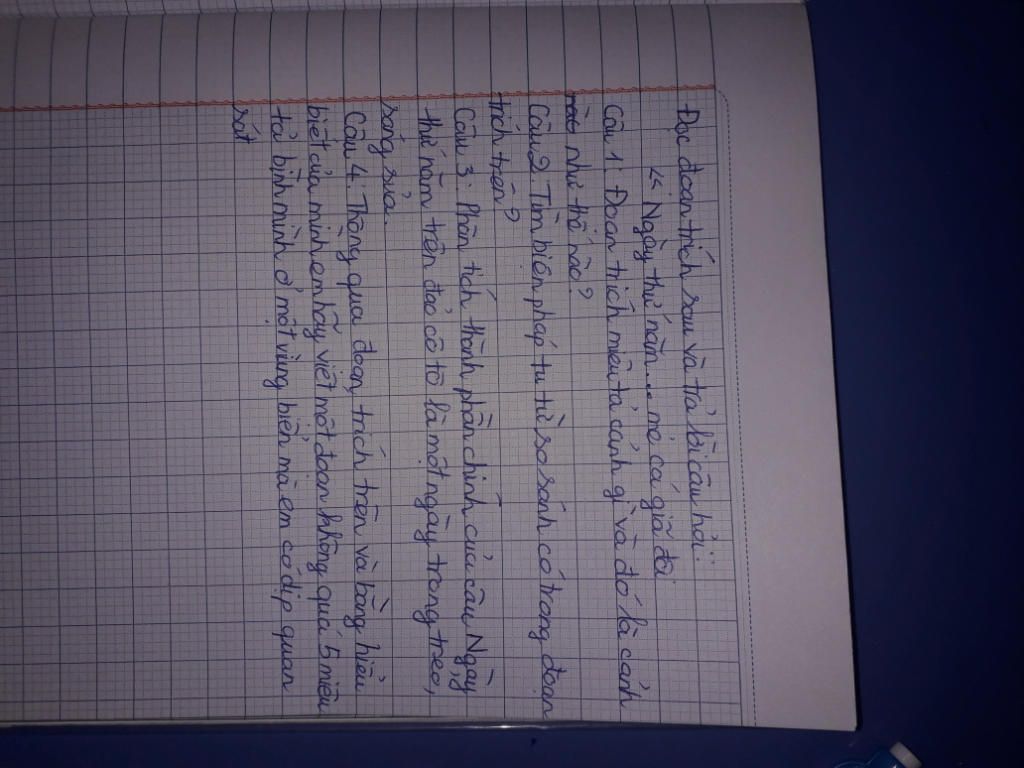 Đọc đoạn trích sau và trả lời câu hỏi:
" Ngày thứ năm... mẻ cá giã đôi
Câu 1: Đoạn trích miêu tả cảnh gì và đó là cảnh
như thế nào?
Câu 2. Tìm biện pháp tu từ so sánh có trong đoạn
trích trên?
Câu 3: Phân tích thành phần chính của câu Ngày
thứ năm trên đảo cô tô là một ngày trong trẻo,
sáng sủa.
Câu 4: Thông qua đoạn trích trên và bằng hiểu
biết của mình em hãy viết một đoạn không quá 5 miêu
tả bình minh ở một vùng biển mà em có dịp quan
sát